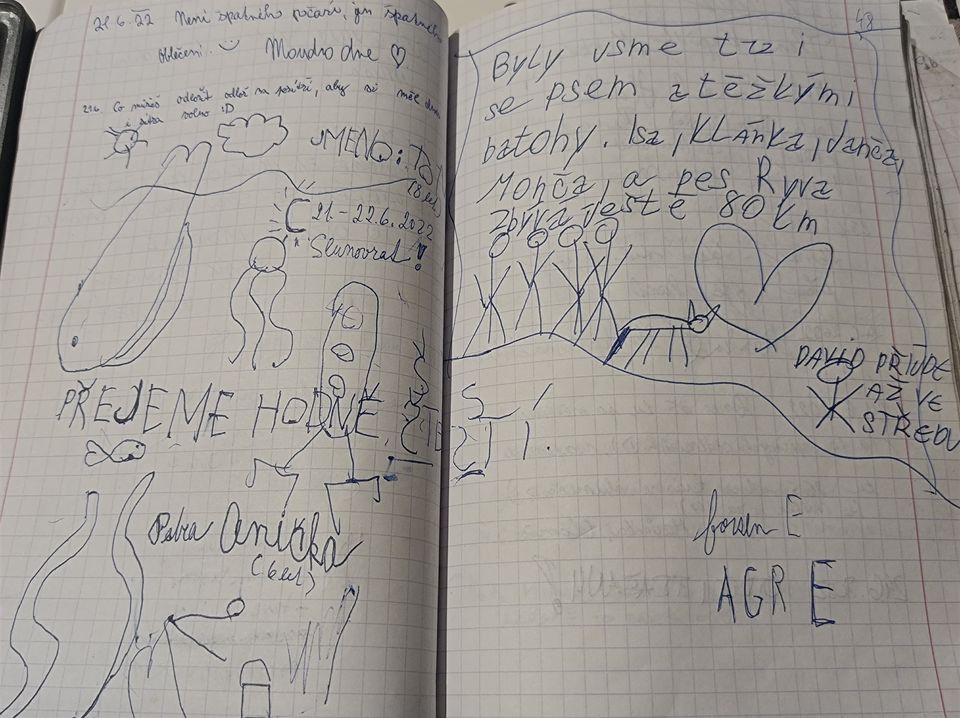 21.6.22 Není špatného počasí, jen špatného
oblečení.. :)
Moudro dne ♡
21.6. Co můžeš odložit odlož na pozítří, aby si měl dnes
i zítra volno :D
JMENO: TO
(8 let)
21.-22.6.2022
Slunovrat!
PŘEJEME HODNĚ ŠTE
STÍ.
Petra Anička
(6 let)
48
Byly jsme tu i
se psem z těžkými
batohy. Isa, KLÁŇKA, Vanča,
Monča, a pes Ryva
zbyvá ještě 80 km
DAVID PŘIJDE
AŽ VE
STŘEDU
forsen E
AGR E